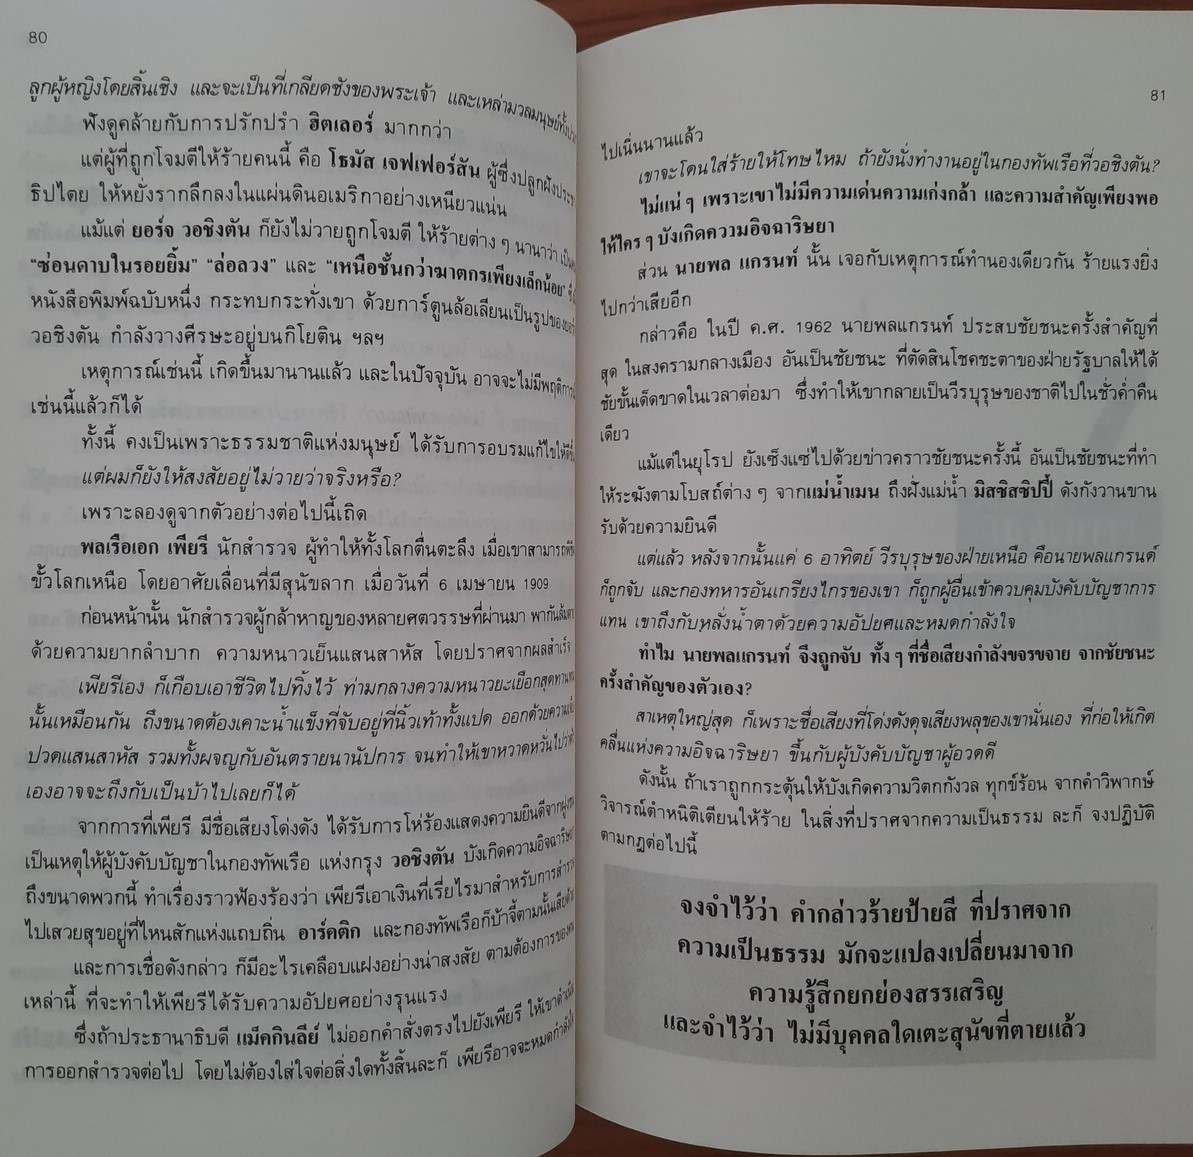 80
ลูกผู้หญิงโดยสิ้นเชิง และจะเป็นที่เกลียดชังของพระเจ้า และเหล่ามวลมนุษย์ทั้ง
ฟังดูคล้ายกับการปรักปรำ ฮิตเลอร์ มากกว่า
แต่ผู้ที่ถูกโจมตีให้ร้ายคนนี้ คือ โธมัส เจฟเฟอร์สัน ผู้ซึ่งปลูกฝังประชา
ธิปไตย ให้หยั่งรากลึกลงในแผ่นดินอเมริกาอย่างเหนียวแน่น
แม้แต่ ยอร์จ วอชิงตัน ก็ยังไม่วายถูกโจมตี ให้ร้ายต่าง ๆ นานาว่า
“ซ่อนดาบในรอยยิ้ม” “ล่อลวง” และ “เหนือชั้นกว่าฆาตกรเพียงเล็กน้อย”
หนังสือพิมพ์ฉบับหนึ่ง กระทบกระทั่งเขา ด้วยการ์ตูนล้อเลียนเป็นรูปของ
วอชิงตัน กำลังวางศีรษะอยู่บนกิโยติน ฯลฯ
เหตุการณ์เช่นนี้ เกิดขึ้นมานานแล้ว และในปัจจุบัน อาจจะไม่มีพฤติการณ์
เช่นนี้แล้วก็ได้
ทั้งนี้ คงเป็นเพราะธรรมชาติแห่งมนุษย์ ได้รับการอบรมแก้ไขให้ดีขึ้น
แต่ผมก็ยังให้สงสัยอยู่ไม่วายว่าจริงหรือ?
เพราะลองดูจากตัวอย่างต่อไปนี้เถิด
พลเรือเอก เพียรี นักสำรวจ ผู้ทำให้ทั้งโลกตื่นตะลึง เมื่อเขาสามารถพิชิต
ขั้วโลกเหนือ โดยอาศัยเลื่อนที่มีสุนัขลาก เมื่อวันที่ 6 เมษายน 1909
ก่อนหน้านั้น นักสำรวจผู้กล้าหาญของหลายศตวรรษที่ผ่านมา พากันล้มตาย
ด้วยความยากลำบาก ความหนาวเย็นแสนสาหัส โดยปราศจากผลสำเร็จ
เพียรีเอง ก็เกือบเอาชีวิตไปทิ้งไว้ ท่ามกลางความหนาวยะเยือกสุดทานทน
นั้นเหมือนกัน ถึงขนาดต้องเคาะน้ำแข็งที่จับอยู่ที่นิ้วเท้าทั้งแปด ออกด้วยความเจ็บ
ปวดแสนสาหัส รวมทั้งผจญกับอันตรายนานัปการ จนทำให้เขาหวาดหวั่นไปว่าตัว
เองอาจจะถึงกับเป็นบ้าไปเลยก็ได้
จากการที่เพียรี มีชื่อเสียงโด่งดัง ได้รับการโห่ร้องแสดงความยินดีจากฝูงชน
เป็นเหตุให้ผู้บังคับบัญชาในกองทัพเรือ แห่งกรุง วอชิงตัน บังเกิดความอิจฉาริษยา
ถึงขนาดพวกนี้ ทำเรื่องราวฟ้องร้องว่า เพียรีเอาเงินที่เรี่ยไรมาสำหรับการสำรวจ
ไปเสวยสุขอยู่ที่ไหนสักแห่งแถบถิ่น อาร์คติก และกองทัพเรือก็บ้าจี้ตามนั้นเสียด้วย
และการเชื่อดังกล่าว ก็มีอะไรเคลือบแฝงอย่างน่าสงสัย ตามต้องการของคน
เหล่านี้ ที่จะทำให้เพียรีได้รับความอัปยศอย่างรุนแรง
ซึ่งถ้าประธานาธิบดี แม็คกินลีย์ ไม่ออกคำสั่งตรงไปยังเพียรี ให้เขาดำเนิน
การออกสำรวจต่อไป โดยไม่ต้องใส่ใจต่อสิ่งใดทั้งสิ้นละก็ เพียรีอาจจะหมดกำลังใจ
81
ไปเนิ่นนานแล้ว
เขาจะโดนใส่ร้ายให้โทษไหม ถ้ายังนั่งทำงานอยู่ในกองทัพเรือที่วอชิงตัน?
ไม่แน่ ๆ เพราะเขาไม่มีความเด่นความเก่งกล้า และความสำคัญเพียงพอ
ให้ใคร ๆ บังเกิดความอิจฉาริษยา
ส่วน นายพล แกรนท์ นั้น เจอกับเหตุการณ์ทำนองเดียวกัน ร้ายแรงยิ่ง
ไปกว่าเสียอีก
กล่าวคือ ในปี ค.ศ. 1962 นายพลแกรนท์ ประสบชัยชนะครั้งสำคัญที่
สุด ในสงครามกลางเมือง อันเป็นชัยชนะ ที่ตัดสินโชคชะตาของฝ่ายรัฐบาลให้ได้
ชัยขั้นเด็ดขาดในเวลาต่อมา ซึ่งทำให้เขากลายเป็นวีรบุรุษของชาติไปในชั่วค่ำคืน
เดียว
แม้แต่ในยุโรป ยังเซ็งแซ่ไปด้วยข่าวคราวชัยชนะครั้งนี้ อันเป็นชัยชนะที่ทำ
ให้ระฆังตามโบสถ์ต่าง ๆ จากแม่น้ำเมน ถึงฝั่งแม่น้ำ มิสซิสซิปปี้ ดังกังวานขาน
รับด้วยความยินดี
แต่แล้ว หลังจากนั้นแค่ 6 อาทิตย์ วีรบุรุษของฝ่ายเหนือ คือนายพลแกรนต์
ก็ถูกจับ และกองทหารอันเกรียงไกรของเขา ก็ถูกผู้อื่นเข้าควบคุมบังคับบัญชาการ
แทน เขาถึงกับหลั่งน้ำตาด้วยความอัปยศและหมดกำลังใจ
ทำไม นายพลแกรนท์ จึงถูกจับ ทั้ง ๆ ที่ชื่อเสียงกำลังขจรขจาย จากชัยชนะ
ครั้งสำคัญของตัวเอง?
สาเหตุใหญ่สุด ก็เพราะชื่อเสียงที่โด่งดังดุจเสียงพลุของเขานั่นเอง ที่ก่อให้เกิด
คลื่นแห่งความอิจฉาริษยา ขึ้นกับผู้บังคับบัญชาผู้อวดดี
ดังนั้น ถ้าเราถูกกระตุ้นให้บังเกิดความวิตกกังวล ทุกข์ร้อน จากคำวิพากษ์
วิจารณ์ตำหนิติเตียนให้ร้าย ในสิ่งที่ปราศจากความเป็นธรรม ละก็ จงปฏิบัติ
ตามกฎต่อไปนี้
จงจำไว้ว่า คำกล่าวร้ายป้ายสี ที่ปราศจาก
ความเป็นธรรม มักจะแปลงเปลี่ยนมาจาก
ความรู้สึกยกย่องสรรเสริญ
และจำไว้ว่า ไม่มีบุคคลใดเตะสุนัขที่ตายแล้ว